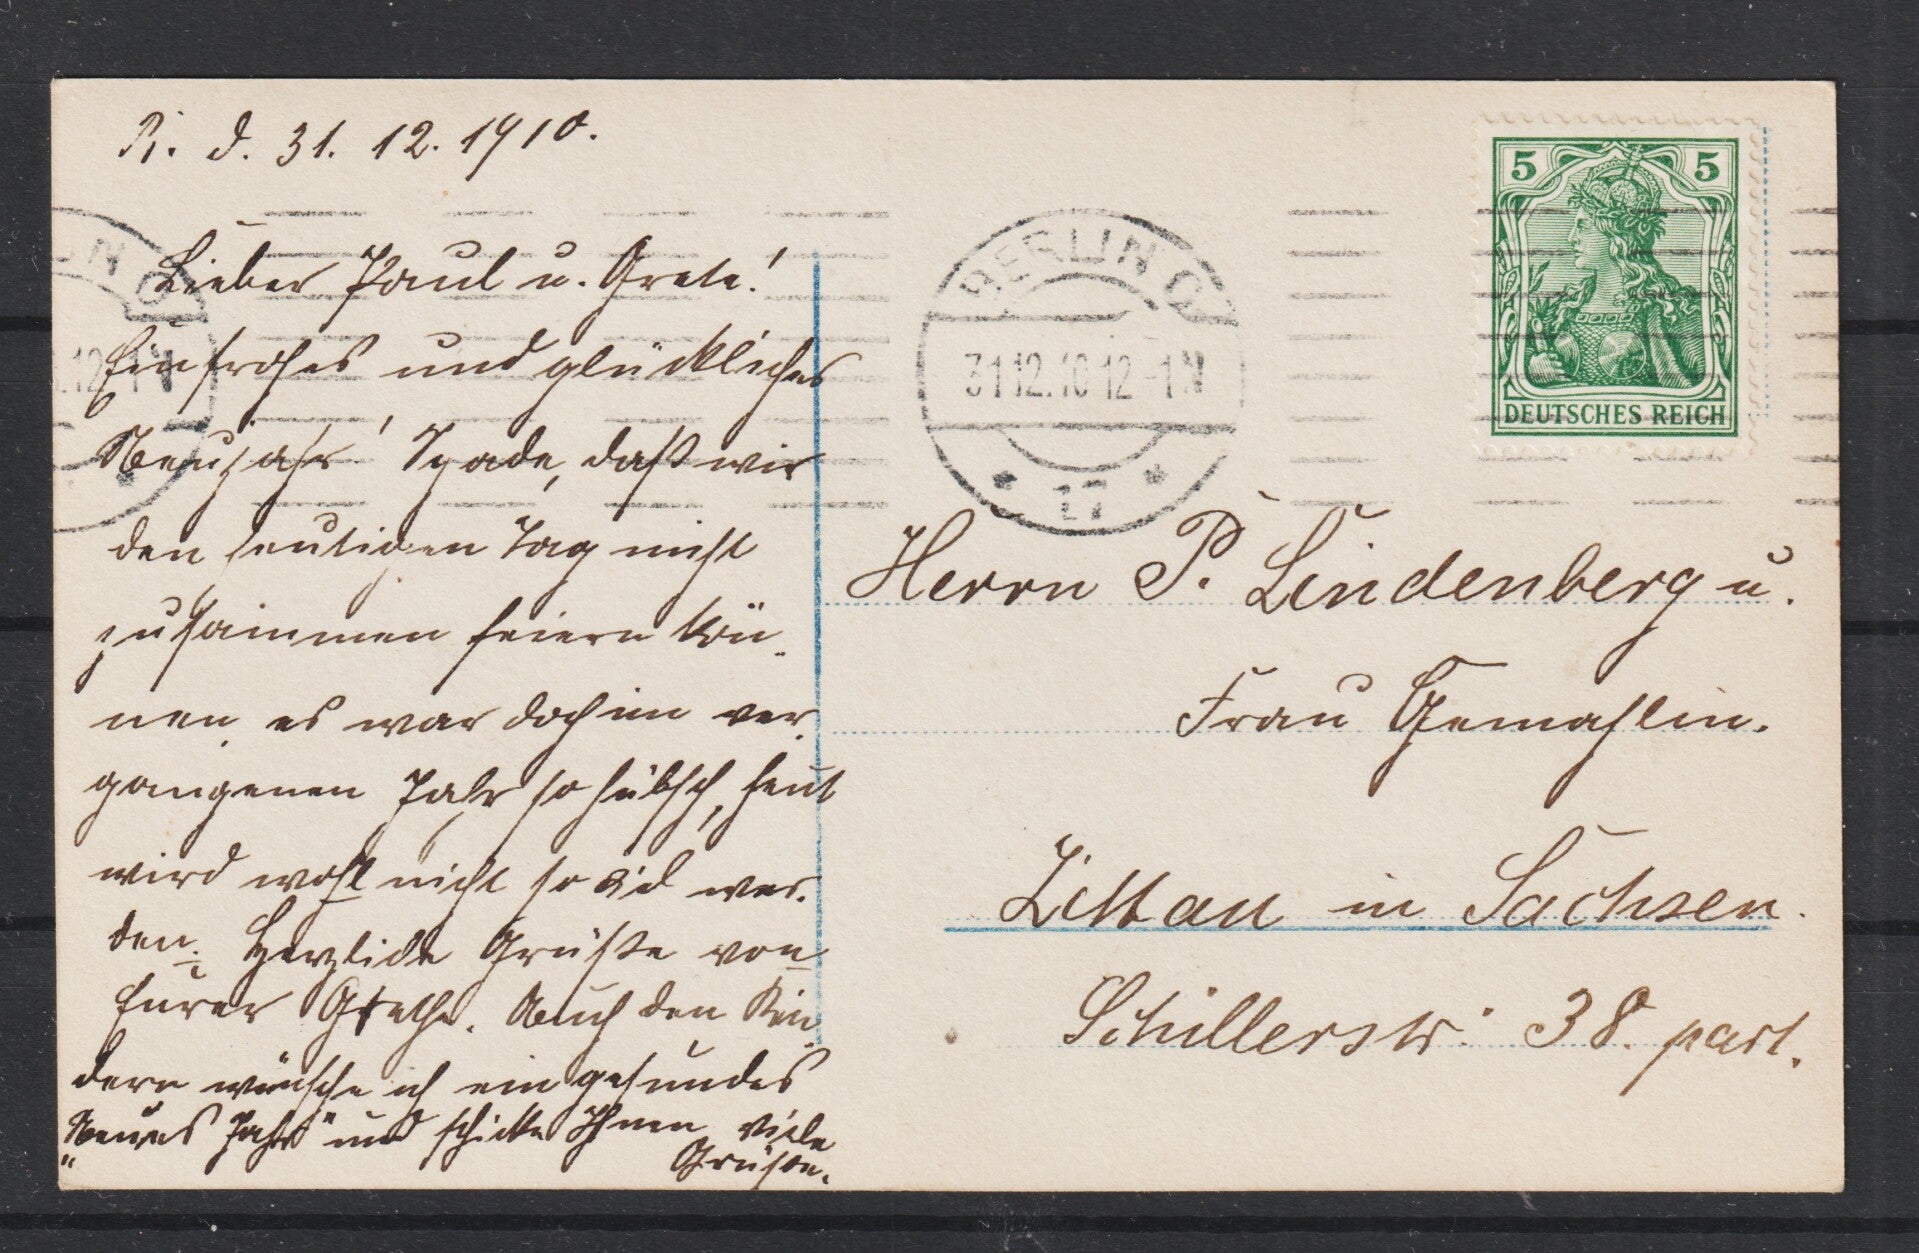 d. 31. 12. 1910.
Lieber Paul u. Grete!
Ein frohes und glückliches
Neujahr! Schade, daß wir
den heutigen Tag nicht
zusammen feiern kön-
nen. es war doch im ver-
gangenen Jahr so hübsch, heut
wird wohl nicht so wer-
den. Herzliche Grüße von
Eurer Grethe. Auch den Kin-
dern wünsche ich ein gesundes
"Neues Jahr" und schicke Ihnen viele
Grüße.
BERLIN O
31.12.10 12-1N
* 17 *
5 5
DEUTSCHES REICH
Herrn P. Lindenberg u.
Frau Gemahlin.
Zittau in Sachsen.
Schillerstr. 38. part.